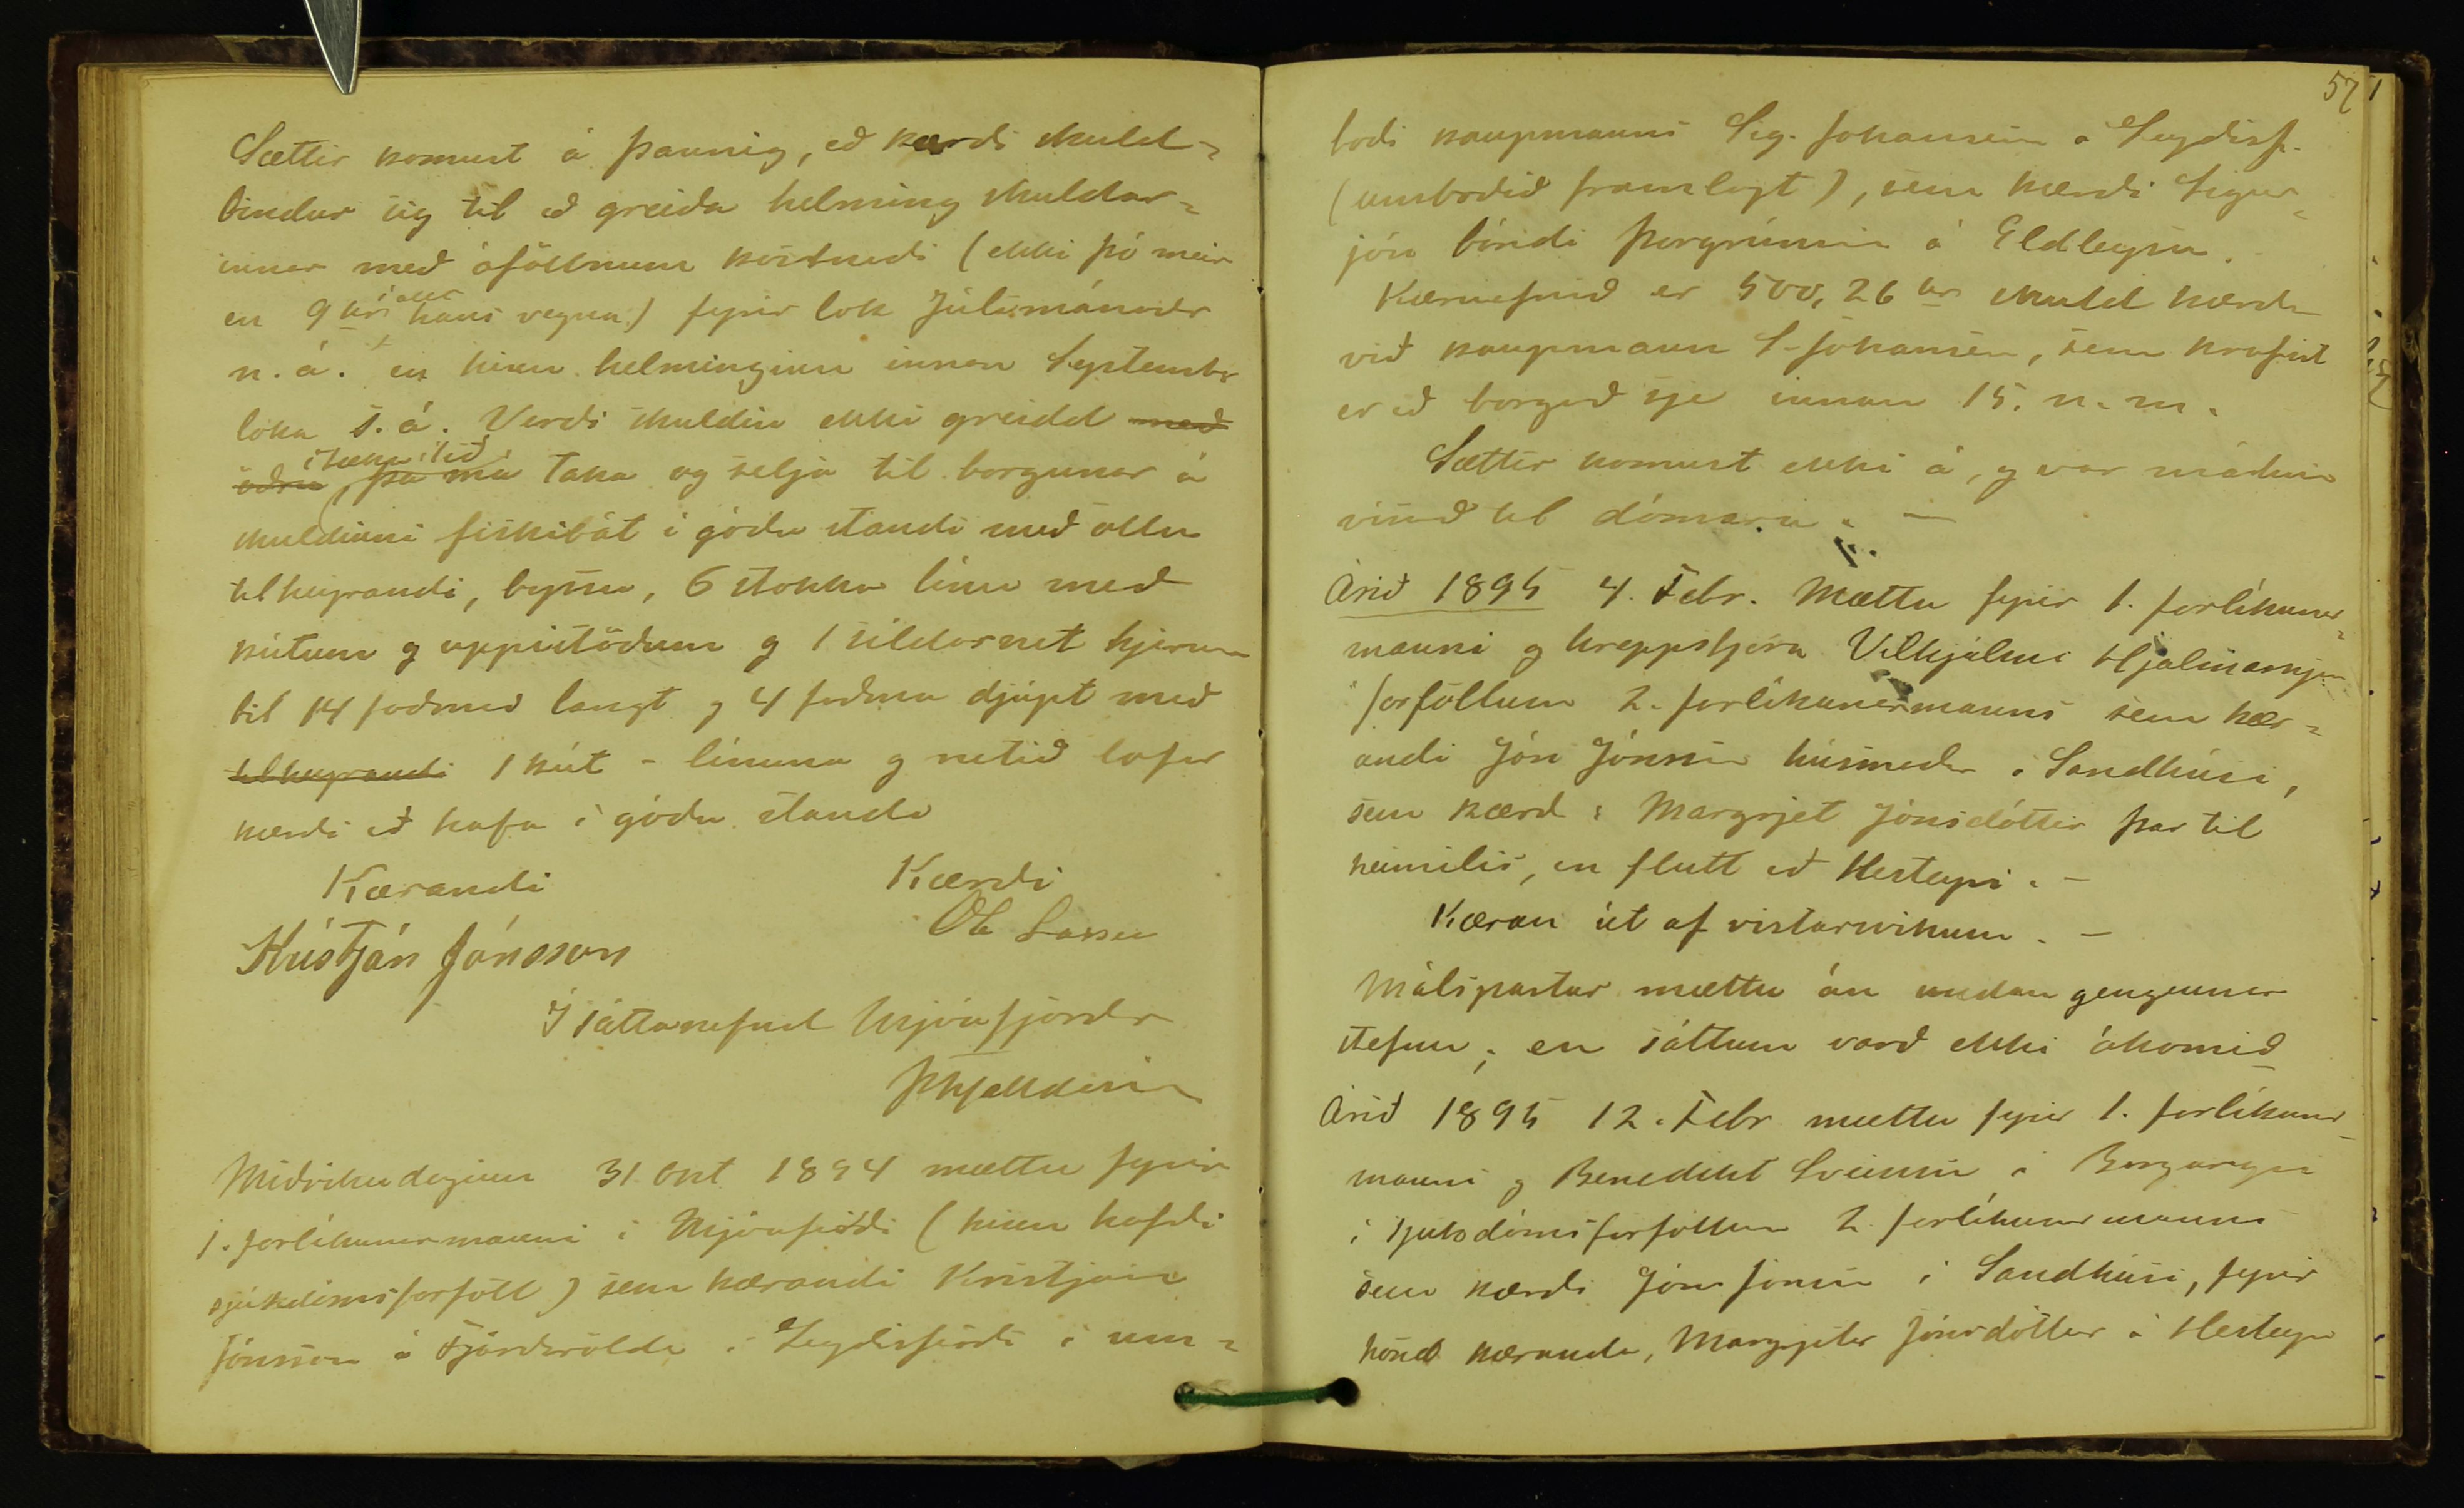 Sættir komust á þannig, að kærði skuld-
bindur sig til að greiða helming skuldar-
innar með áföllnum kostnaði (ekki þó meir
en 9 kr í allt hans vegna) fyrir lok Júlímánaðar
n. á. en hinn helminginn innan September
loka s. á. Verði skuldin ekki greidd með
öðru í tæka tíð, þá má taka og selja til borgunar á
skuldinni fiskibát í góðu standi með öllu
tilheyrandi, byssu, 6 stokka línu með
kútum og uppistöðum og 1 síldarnet hjerum
bil 14 faðma langt og 4 faðma djúpt með
tilheyrandi 1 kút - línuna og netið lofar
kærði að hafa í góðu standi
Kærandi Kærði
Kristján Jónsson Ole Lassen
Í sáttanefnd Mjóafjarðar
Miðvikudaginn 31. Okt 1894 mættu fyrir
1. forlíkunarmanni í Mjóafirði (hinn hafði
sjúkdómsforföll) sem kærandi Kristján
Jónsson á Fjarðaröldu í Seyðisfirði í um-
57
boði kaupmanns Sig. Johansen á Seyðisf.
(umboðið framlagt), sem kærði Sigur-
jón bóndi Þorgrímsson á Eldleysu.
Kæruefnið er 500,26 kr skuld kærða
við kaupmann S. Johansen, sem krafist
er að borguð sje innan 15. n. m.
Sættir komust ekki á, og var málinu
vísað til dómara. —
Árið 1895 4. Febr. Mættu fyrir 1. forlíkunar-
manni og hreppstjóra Vilhjálmi Hjálmarssyni
í forföllum 2. forlíkunarmanns sem kær-
andi Jón Jónsson húsmaður í Sandhúsi,
sem kærð: Margrjet Jónsdóttir þar til
heimilis, en flutt að Hesteyri. —
Kæran út af vistarrofum. —
Málspartar mættu án undangenginnar
stefnu; en sáttum varð ekki ákomið
Árið 1895 12. Febr mættu fyrir 1. forlíkunar-
manni og Benedikt Sveinssyni í Borgareyri
í sjúkdómsforföllum 2. forlíkunarmanns
sem kærði Jón Jónsson í Sandhúsi, fyrir
hönd kæranda, Margrjetar Jónsdóttur á Hesteyri